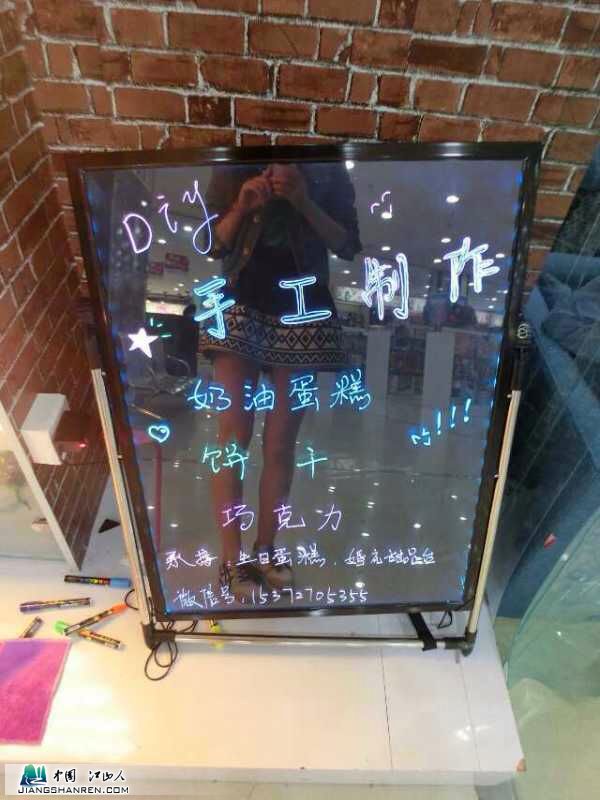 Diy
手工制作
奶油蛋糕
饼干
巧克力
承接:生日蛋糕、婚礼甜品台
微信号:15372705355
中国 江山人
JIANGSHANREN.COM